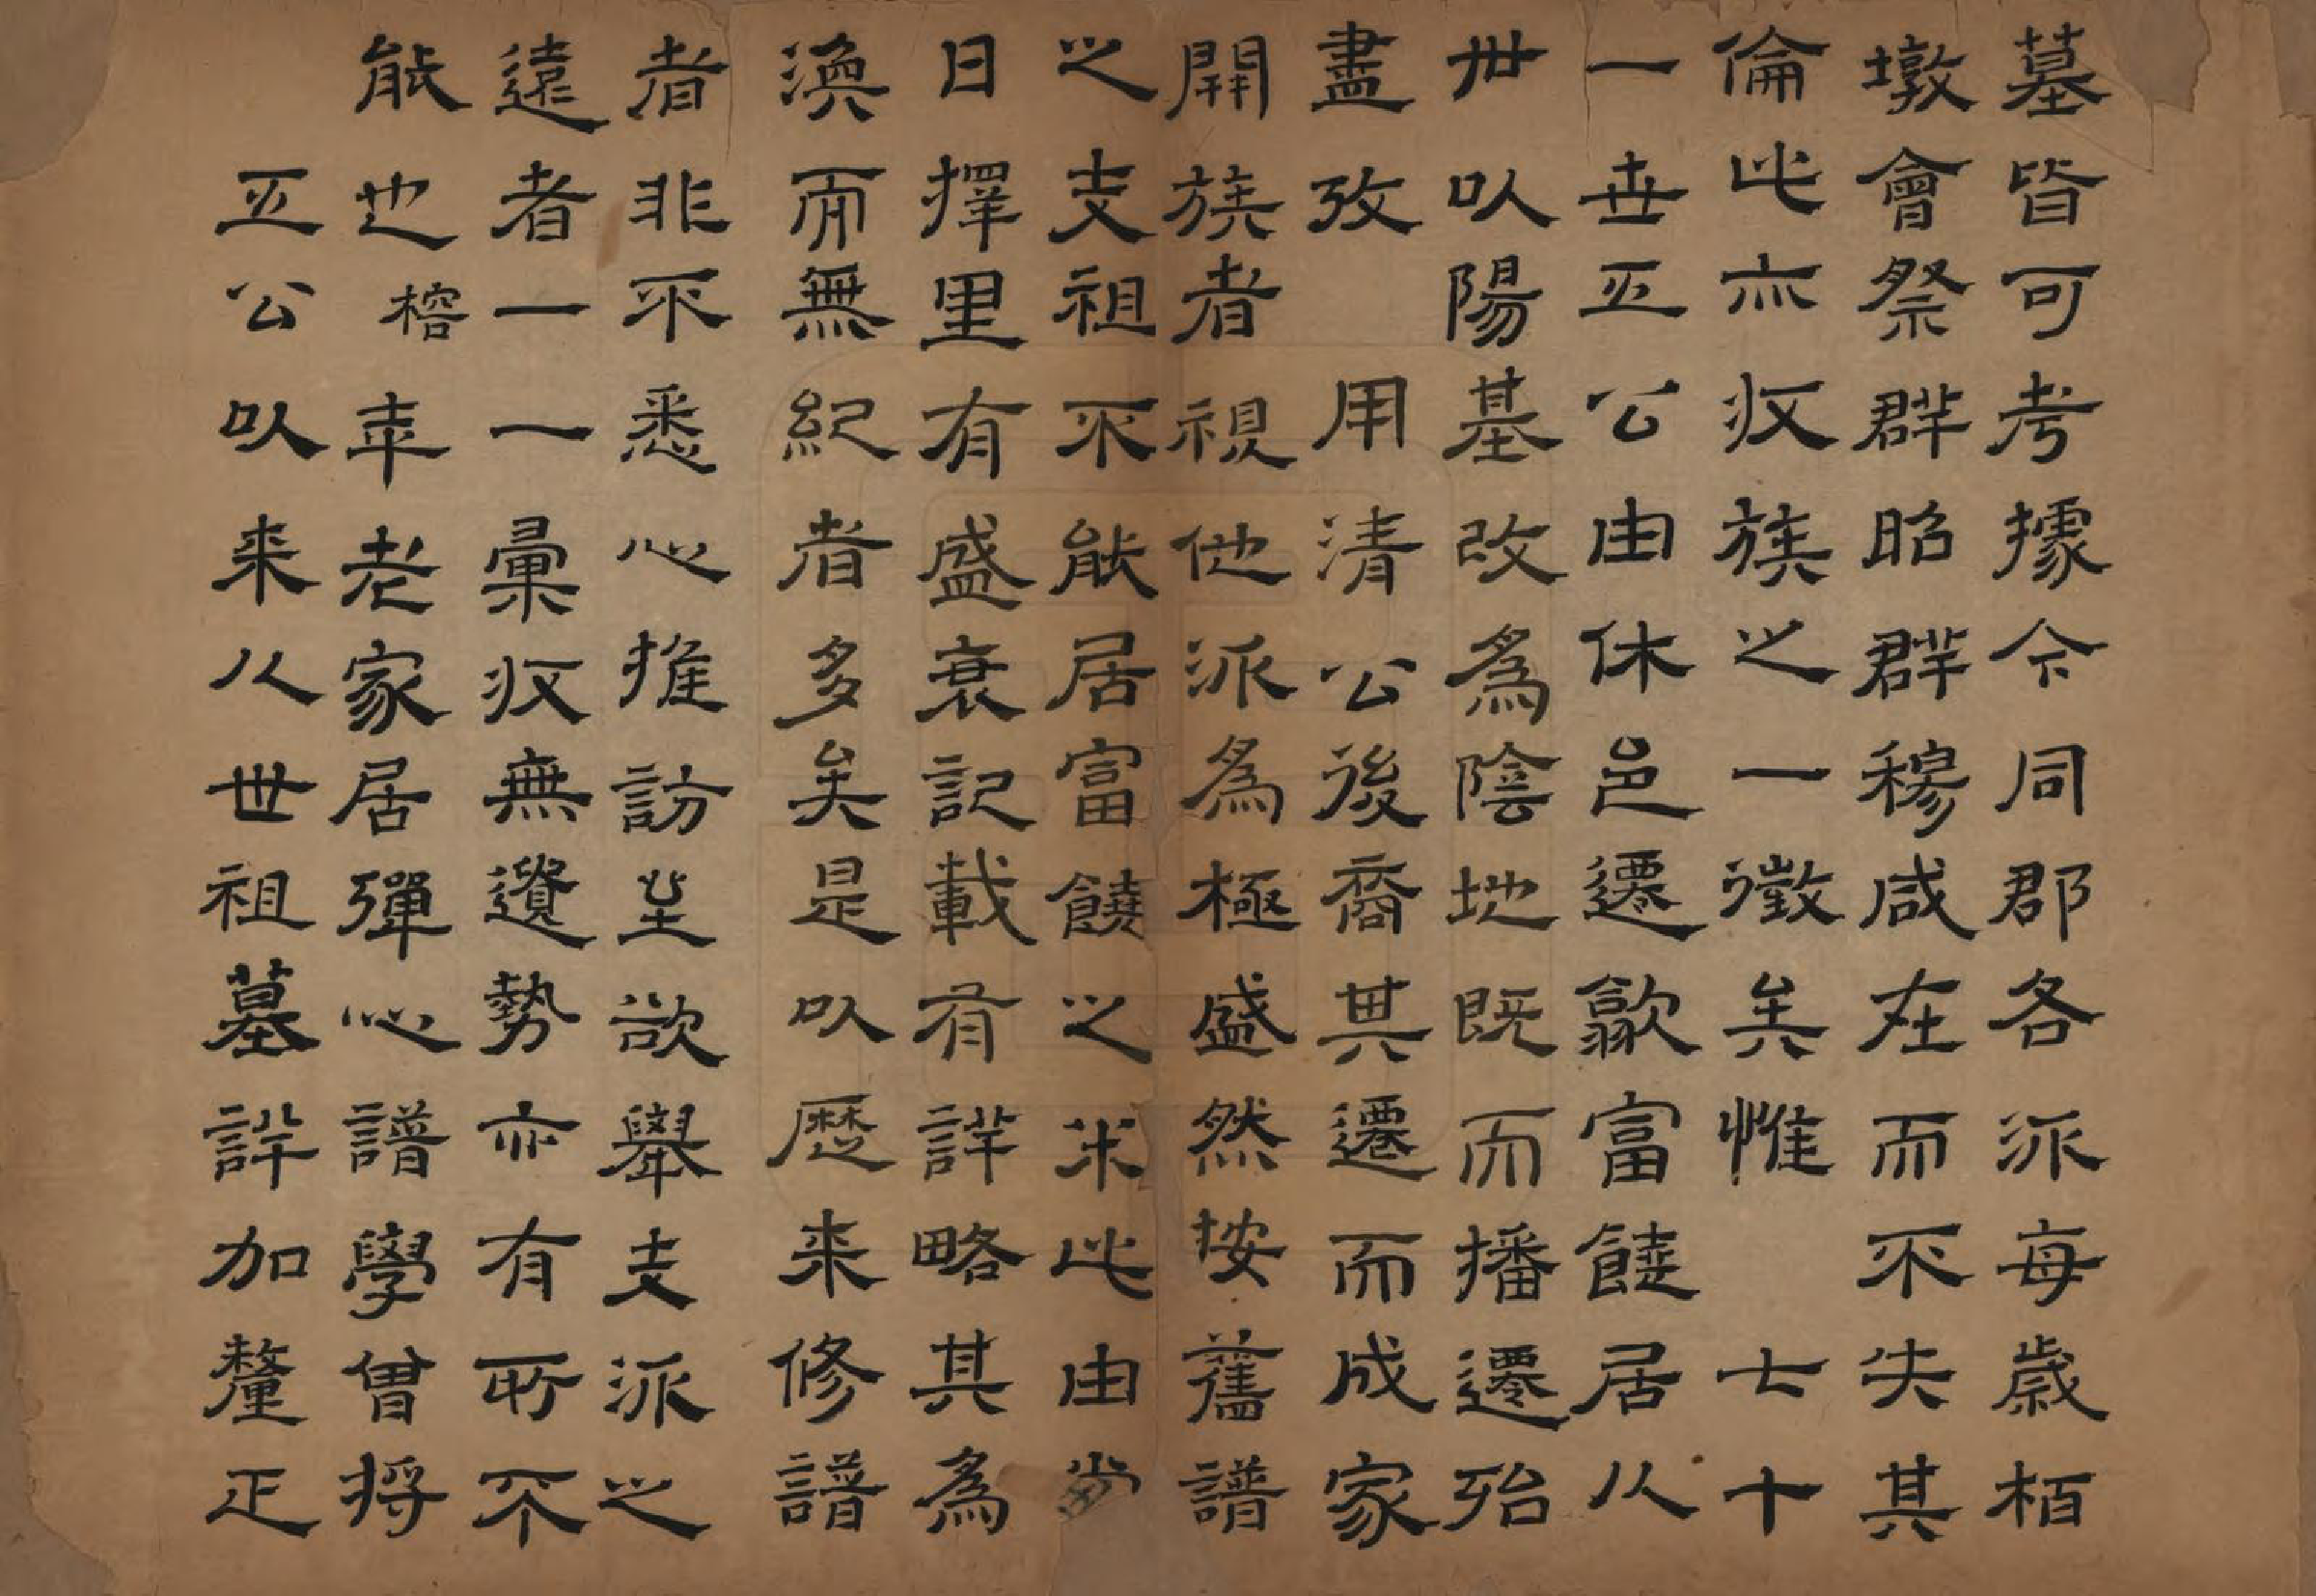 墓皆可考據今同郡各派每歲栢
墩會祭群昭群穆咸在而不失其
倫此亦收族之一徵矣惟　七十
一世五公由休邑遷歙富饒居八
世以陽基改為陰地既而播遷殆
盡攷　用清公後裔其遷而成家
開族者視他派為極盛然按舊譜
之支祖不能居富饒之半此由當
日擇里有盛衰記載有詳略其為
渙而無紀者多矣是以歷来修譜
者非不悉心推訪並欲舉支派之
遠者一一彙收無遺勢亦有所不
能也榕年老家居彈心譜學曾将
五公以来八世祖墓詳加釐正